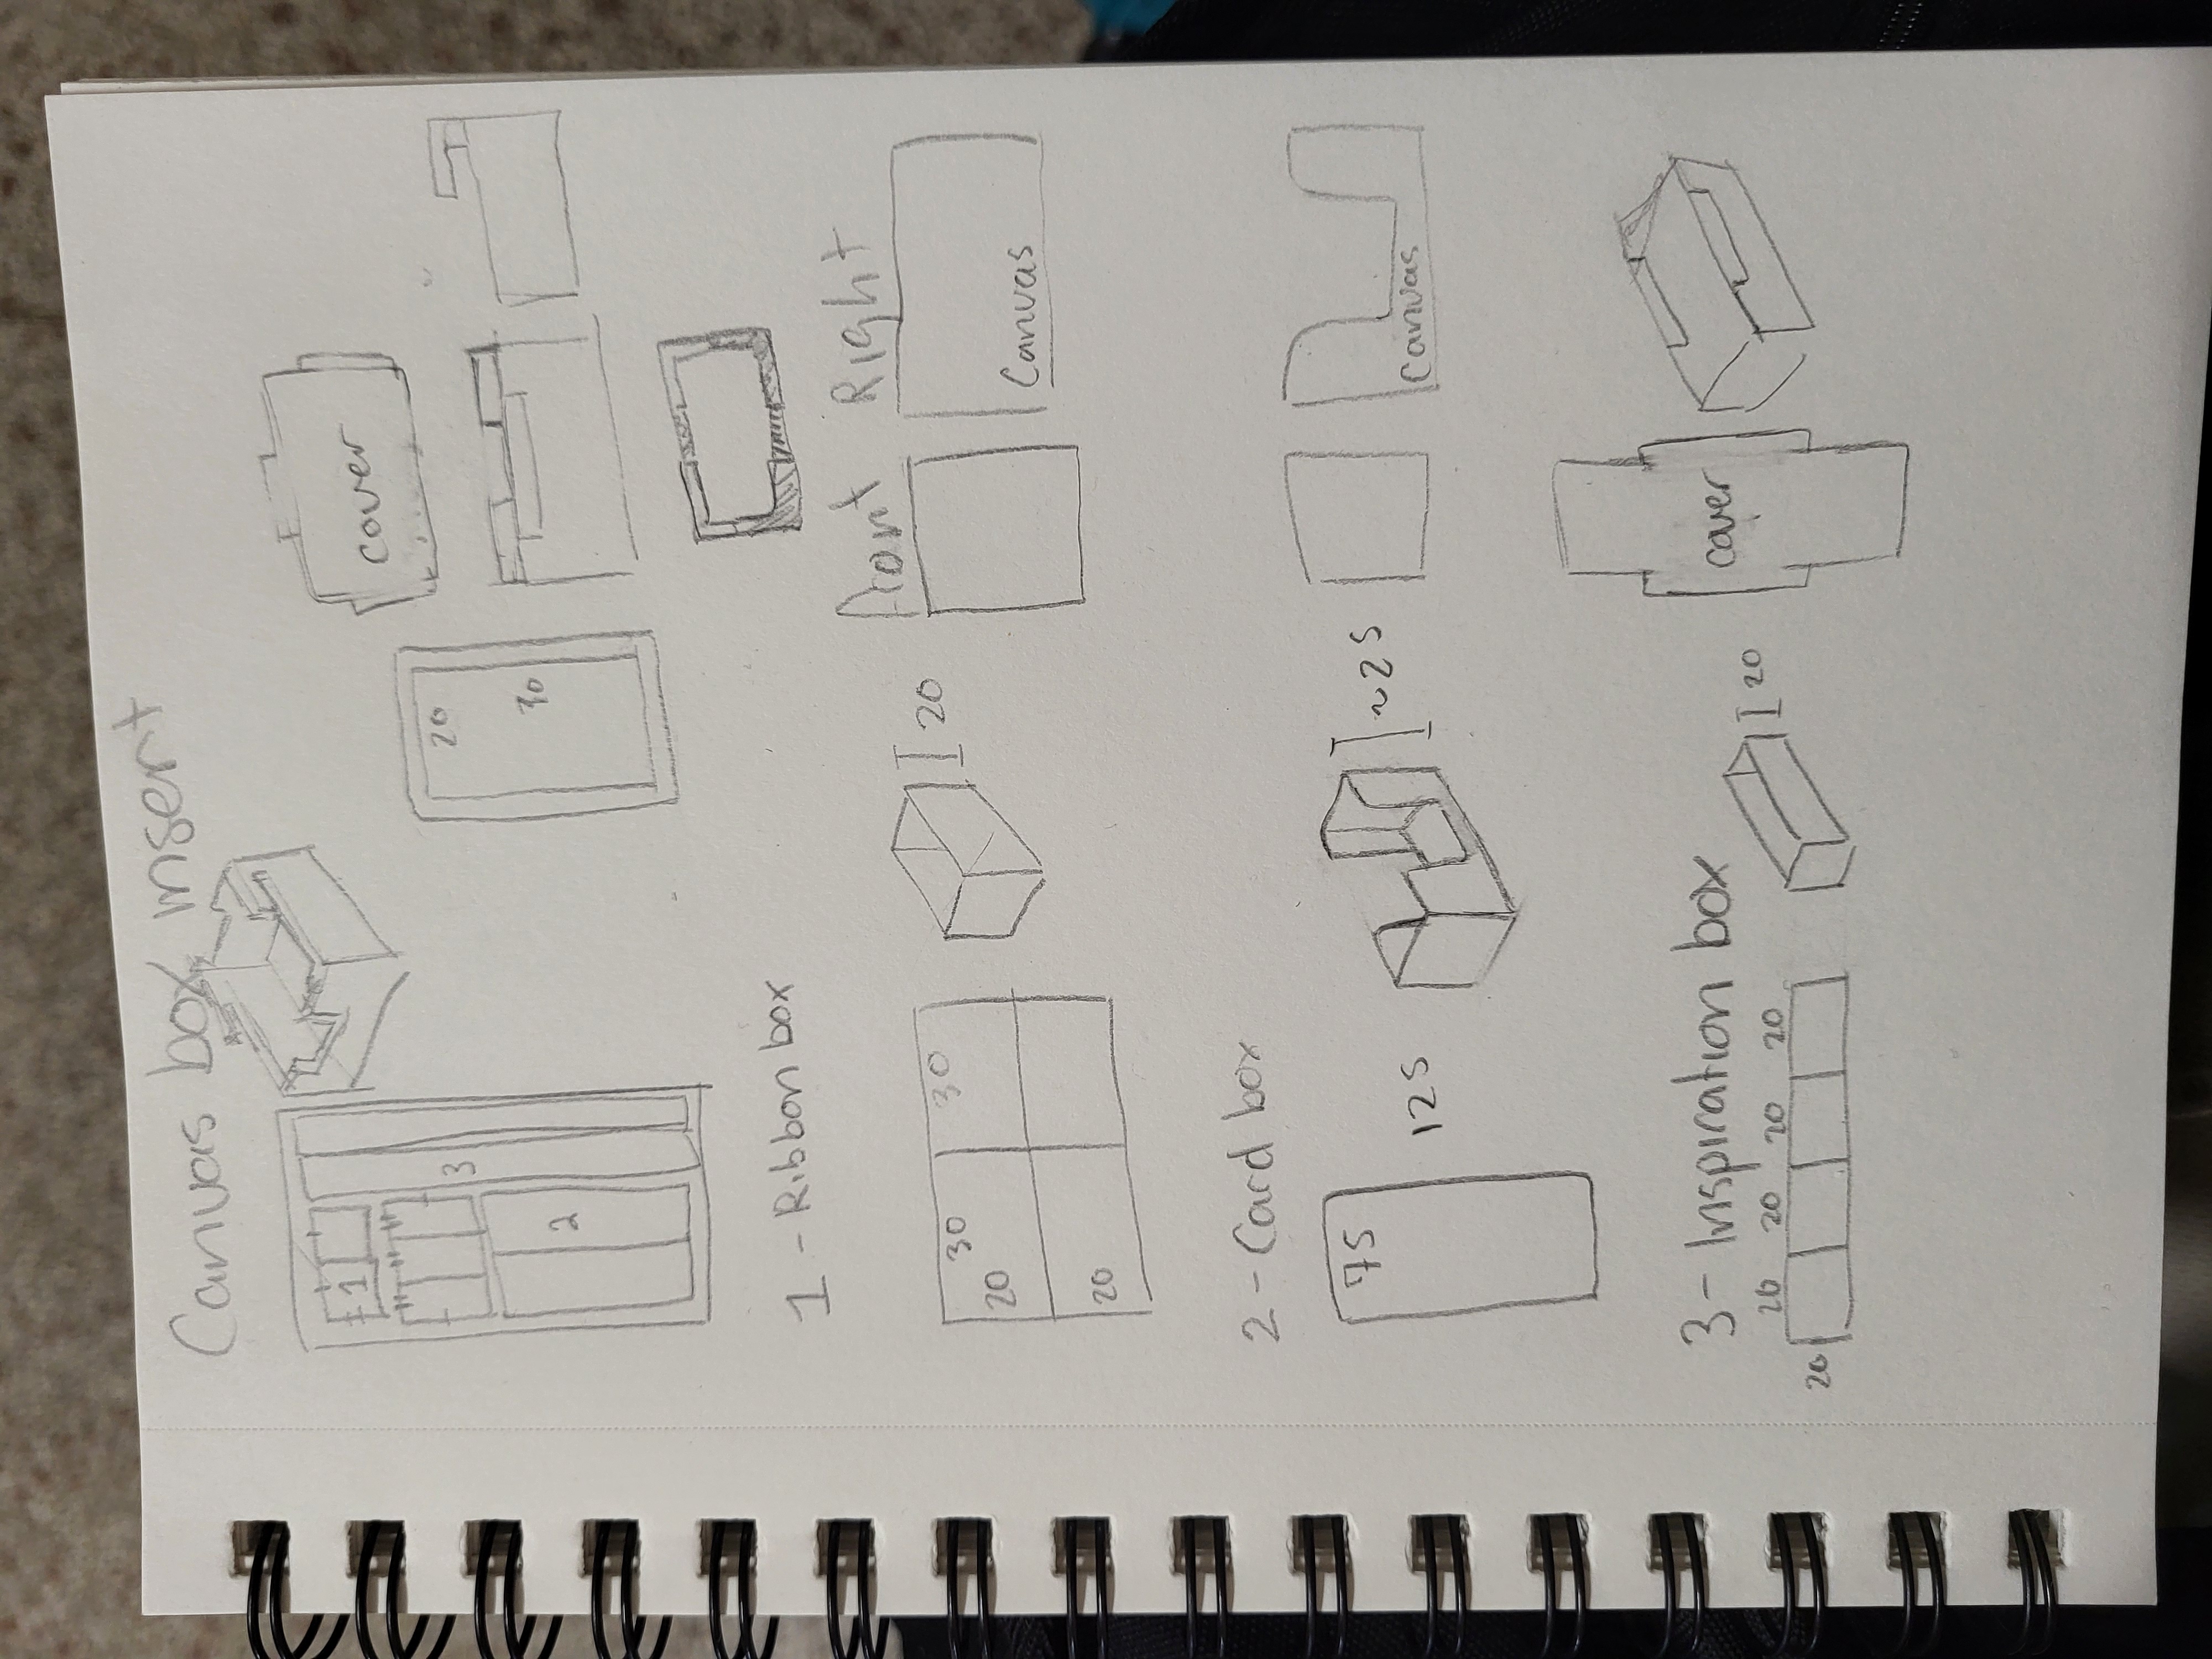 Canvas box insert
1
2
3
20
30
cover
1 - Ribbon box
30
30
20
20
20
Front
Right
Canvas
2 - Card box
75
125
~25
Canvas
3 - Inspiration box
20
20
20
20
20
20
cover